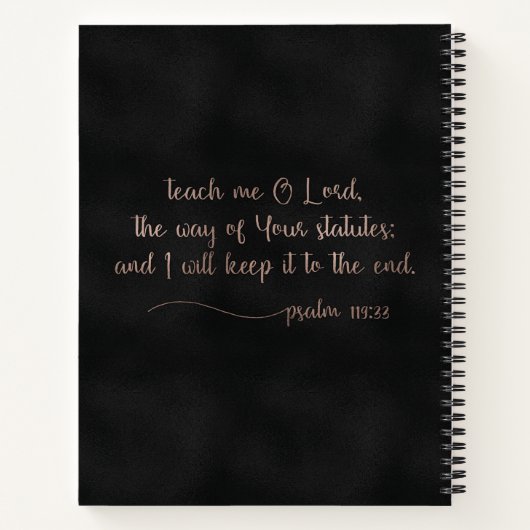 teach me O Lord,
the way of Your statutes;
and I will keep it to the end.
psalm 119:33